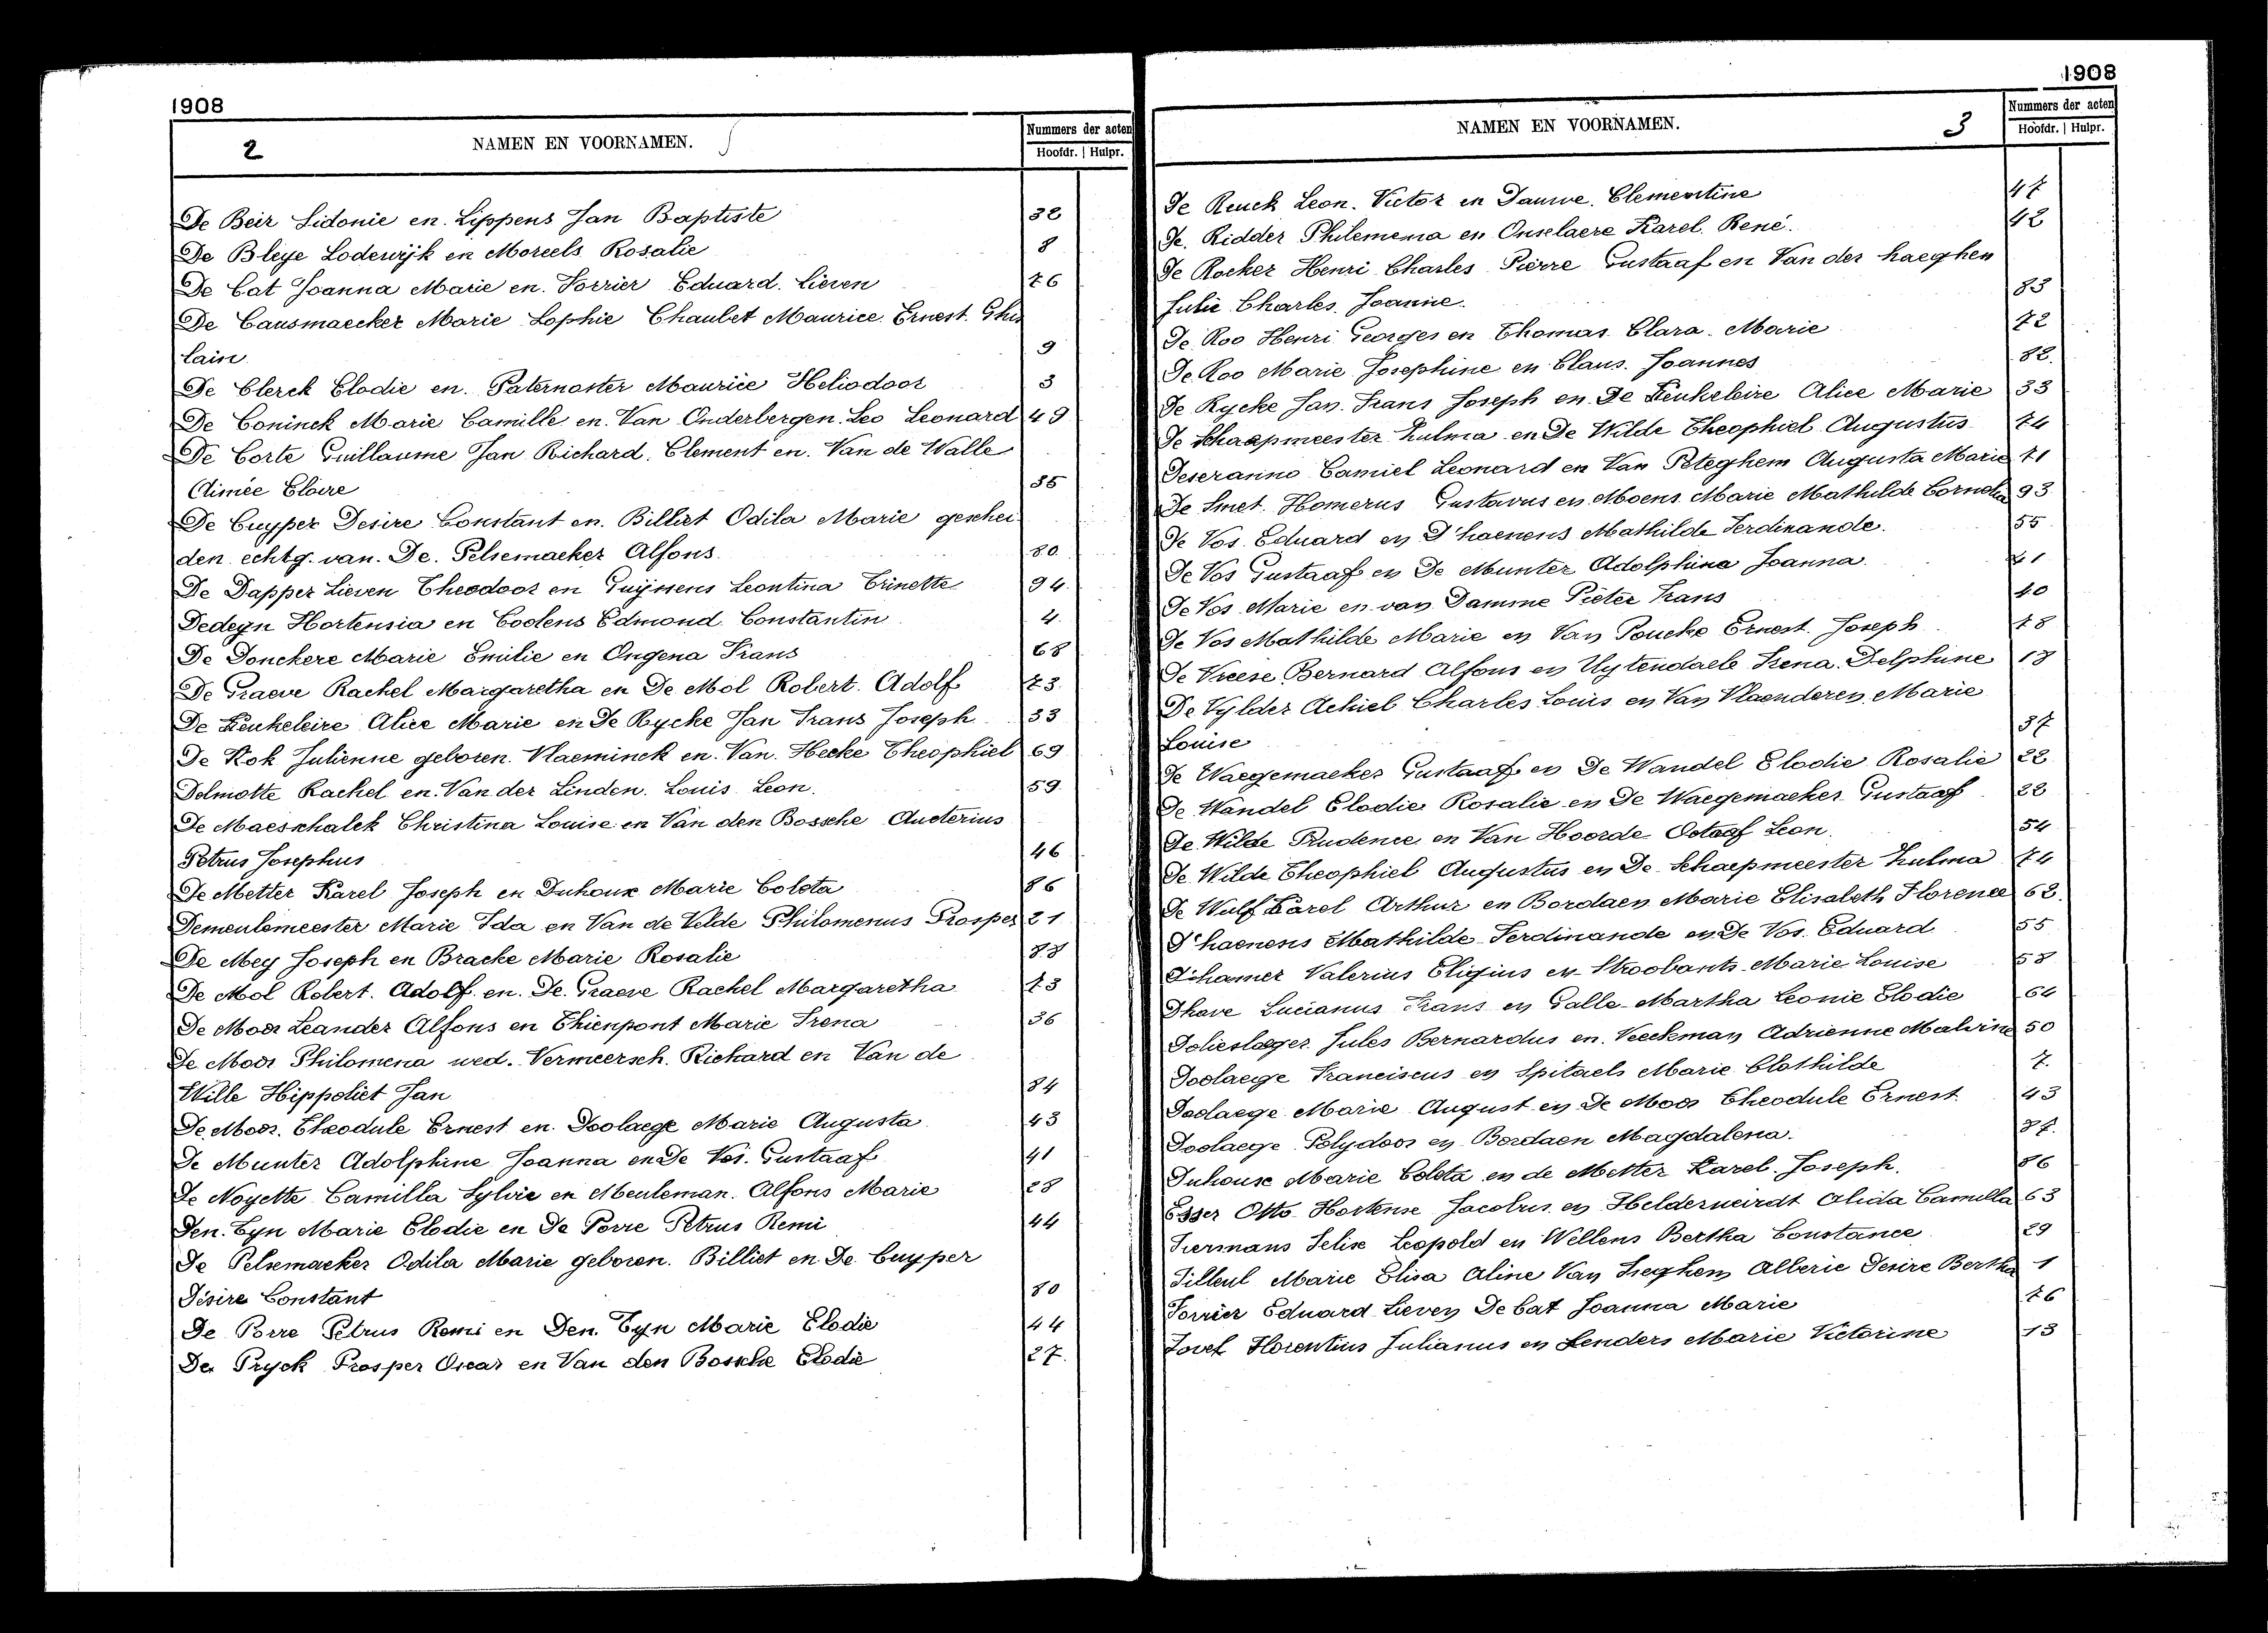 1908
2 NAMEN EN VOORNAMEN. Nummers der acten
Hoofdr. | Hulpr.
De Beir Sidonie en Lippens Jan Baptiste 32
De Bleye Lodewijk en Moreels Rosalie 8
De Cat Joanna Marie en Forrier Eduard Lieven 76
De Causmaecker Marie Sophie Chaulet Maurice Ernest Ghis
lain 9
De Clerck Elodie en Paternoster Maurice Heliodoor 3
De Coninck Marie Camille en Van Onderbergen Leo Leonard 49
De Corte Guillaume Jan Richard Clement en Van de Walle
Aimée Claire 35
De Cuyper Desire Constant en Billiet Odila Marie geschei
den echtg. van De Pelsemaeker Alfons 80
De Dapper Lieven Theodoor en Guijssens Leontina Trinette 94
Dedeyn Hortensia en Coolens Edmond Constantin 4
De Donckere Marie Emilie en Ongena Frans 68
De Graeve Rachel Margaretha en De Mol Robert Adolf 73
De Keukeleire Alice Marie en De Rycke Jan Frans Joseph 33
De Kok Julienne geboren Vlaeminck en Van Hecke Theophiel 69
Delmotte Rachel en Van der Linden Louis Leon 59
De Maesschalck Christina Louise en Van den Bossche Aucterius
Petrus Josephus 46
De Metter Karel Joseph en Duhoux Marie Coleta 86
Demeulemeester Marie Ida en Van de Velde Philomenus Prosper 21
De Mey Joseph en Bracke Marie Rosalie 88
De Mol Robert Adolf en De Graeve Rachel Margaretha 73
De Moor Leander Alfons en Thienpont Marie Irena 36
De Moor Philomena wed. Vermeersch Richard en Van de
Wille Hippoliet Jan 84
De Moor Theodule Ernest en Doolaege Marie Augusta 43
De Munter Adolphine Joanna en De Vos Gustaaf 41
De Noyette Camilla Sylvie en Meuleman Alfons Marie 28
Den Tyn Marie Elodie en De Porre Petrus Remi 44
De Pelsemaeker Odila Marie geboren Billiet en De Cuyper
Désire Constant 80
De Porre Petrus Remi en Den Tyn Marie Elodie 44
De Pryck Prosper Oscar en Van den Bossche Elodie 27
1908
NAMEN EN VOORNAMEN. 3 Nummers der acten
Hoofdr. | Hulpr.
De Reuck Leon Victor en Dauwe Clementine 47
De Ridder Philemena en Onselaere Karel René 42
De Rocker Henri Charles Pierre Gustaaf en Van der haeghen
Julie Charles Joanne 83
De Roo Henri Georges en Thomas Clara Marie 72
De Roo Marie Josephine en Claus Joannes 82
De Rycke Jan Frans Joseph en De Keukeleire Alice Marie 33
De Schaepmeester Zulma en De Wilde Theophiel Augustus 74
Deseranno Camiel Leonard en Van Peteghem Augusta Marie 71
De Smet Homerus Gustavus en Moens Marie Mathilde Cornelia 93
De Vos Eduard en D'haenens Mathilde Ferdinande 55
De Vos Gustaaf en De Munter Adolphina Joanna 41
De Vos Marie en van Damme Pieter Frans 40
De Vos Mathilde Marie en Van Poucke Ernest Joseph 78
De Vreese Bernard Alfons en Uytendaele Irena Delphine 18
De Vylder Achiel Charles Louis en Van Vlaenderen Marie
Louise 37
De Waegemaeker Gustaaf en De Wandel Elodie Rosalie 22
De Wandel Elodie Rosalie en De Waegemaeker Gustaaf 22
De Wilde Prudence en Van Hoorde Octaaf Leon 54
De Wilde Theophiel Augustus en De Schaepmeester Zulma 74
De Wulf Karel Arthur en Bordaen Marie Elisabeth Florence 62
D'haenens Mathilde Ferdinande en De Vos Eduard 55
Dhamer Valerius Eligius en Stroobants Marie Louise 58
Dhave Lucianus Frans en Galle Martha Leonie Elodie 64
Dolieslager Jules Bernardus en Veeckman Adrienne Malvine 50
Doolaege Franciscus en Spitaels Marie Clothilde 7
Doolaege Marie August en De Moor Theodule Ernest 43
Doolaege Polydoor en Bordaen Magdalena 87
Duhouse Marie Coleta en de Metter Karel Joseph 86
Esser Otto Hortense Jacobus en Helderweirdt Alida Camilla 63
Fiermans Felix Leopold en Wellens Bertha Constance 29
Filleul Marie Elisa Aline Van Iseghem Alberic Desire Bertha 1
Forrier Eduard Lieven De Cat Joanna Marie 76
Florentius Julianus en Lenders Marie Victorine 13